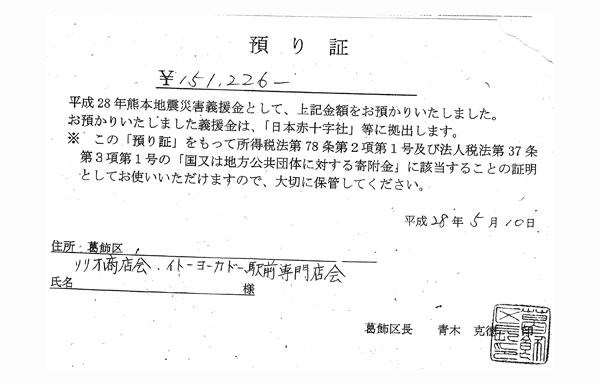 預り証
¥151,226-
平成28年熊本地震災害義援金として、上記金額をお預かりいたしました。
お預かりいたしました義援金は、「日本赤十字社」等に拠出します。
※ この「預り証」をもって所得税法第78条第2項第1号及び法人税法第37条
第3項第1号の「国又は地方公共団体に対する寄附金」に該当することの証明
としてお使いいただけますので、大切に保管してください。
平成28年5月10日
住所:葛飾区
リリオ商店会、イトーヨーカドー駅前専門店会
氏名 様
葛飾区長 青木 克德 印